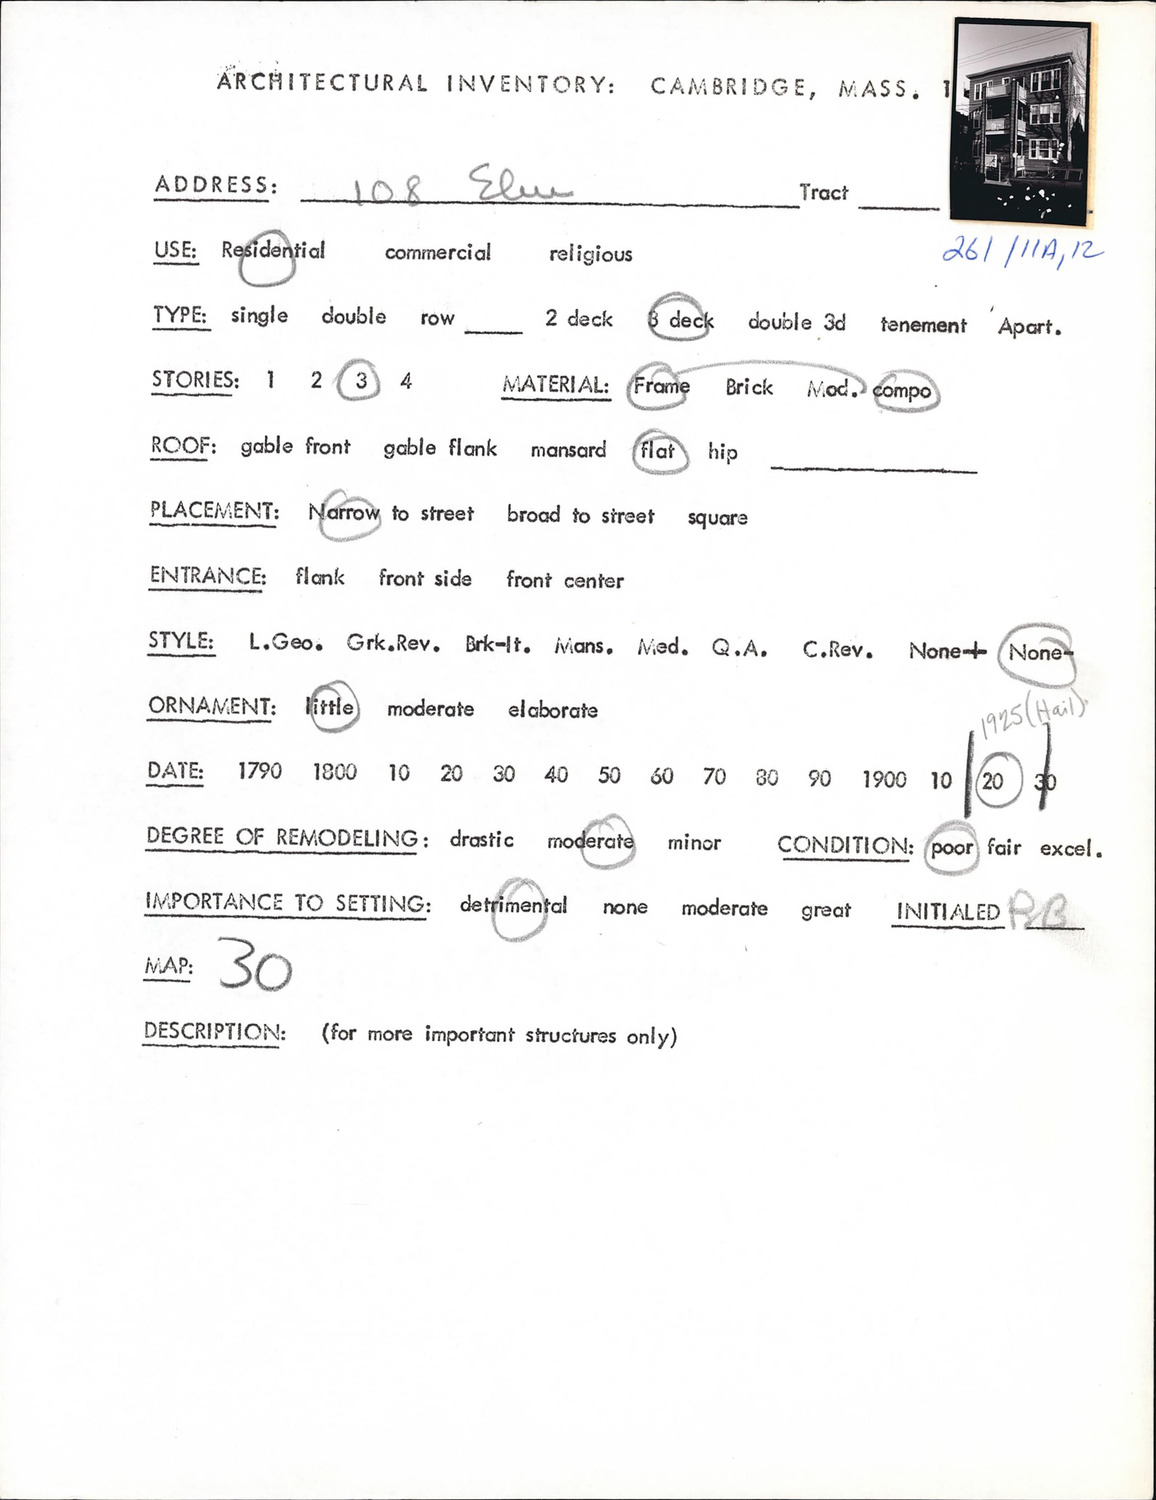 ARCHITECTURAL INVENTORY: CAMBRIDGE, MASS. 1
ADDRESS: 108 Elm Tract
261/11A,12
USE: Residential commercial religious
TYPE: single double row 2 deck 3 deck double 3d tenement Apart.
STORIES: 1 2 3 4 MATERIAL: Frame Brick Mod. compo
ROOF: gable front gable flank mansard flat hip
PLACEMENT: Narrow to street broad to street square
ENTRANCE: flank front side front center
STYLE: L.Geo. Grk.Rev. Brk-It. Mans. Med. Q.A. C.Rev. None+ None-
ORNAMENT: little moderate elaborate
1925 (Hail)
DATE: 1790 1800 10 20 30 40 50 60 70 80 90 1900 10 20 30
DEGREE OF REMODELING: drastic moderate minor CONDITION: poor fair excel.
IMPORTANCE TO SETTING: detrimental none moderate great INITIALED RB
MAP: 30
DESCRIPTION: (for more important structures only)